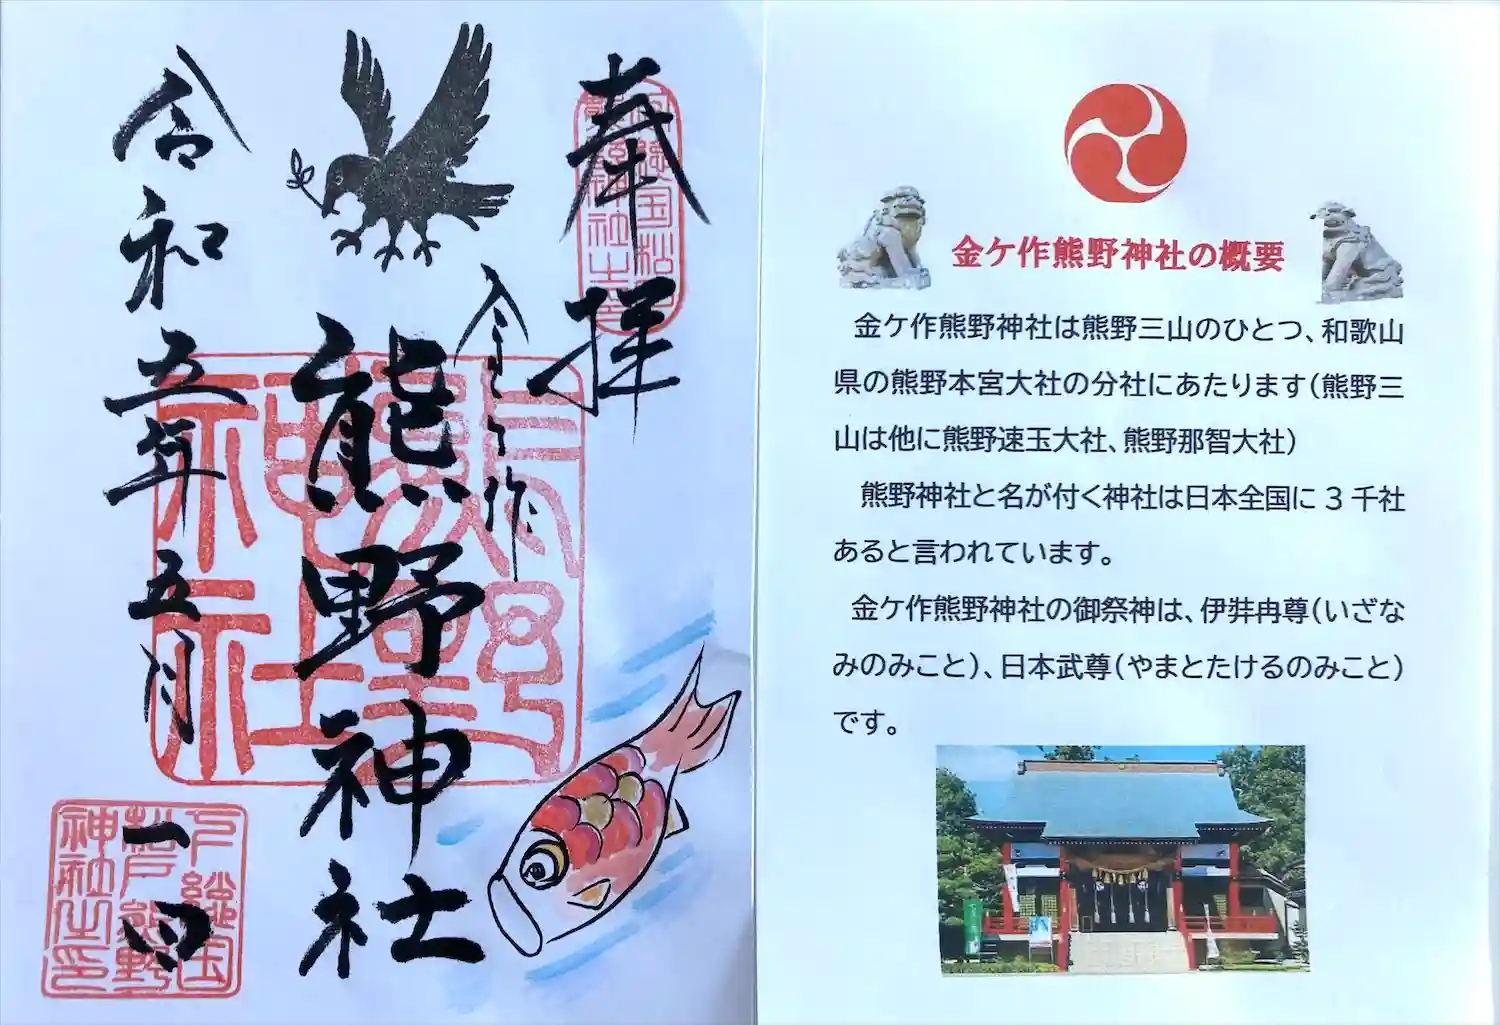 奉拝
金ケ作
熊野神社
令和五年五月一日
金ケ作熊野神社の概要
金ケ作熊野神社は熊野三山のひとつ、和歌山
県の熊野本宮大社の分社にあたります(熊野三
山は他に熊野速玉大社、熊野那智大社)
熊野神社と名が付く神社は日本全国に3千社
あると言われています。
金ケ作熊野神社の御祭神は、伊弉冉尊(いざな
みのみこと)、日本武尊(やまとたけるのみこと)
です。
熊野
神社
下総国
松戸熊野
神社之印